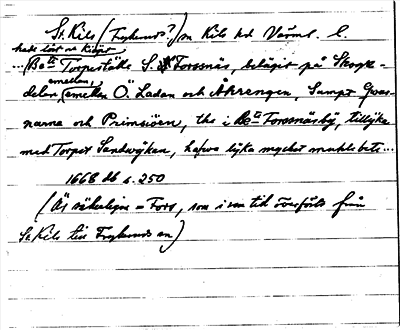 St. Kils (Frykerud?) sn Kils hd Värml. l.
hade låtit sa Kiöpt
... (Be:te Torpeställe S. Forssnäs, belägit på Skogz-
emellan
delen, emellan Ö. Ladan och Åkrengen, Sampt
narna och Brimsiöen, ths i Be:te Forssnäsby, tillijka
med Torpet Sandwijken, hafwa lijka mycket muhlebete...
1668 db s. 250
(Är säkerligen = Fors, som i sen tid överförts från
St. Kils till Frykeruds sn)